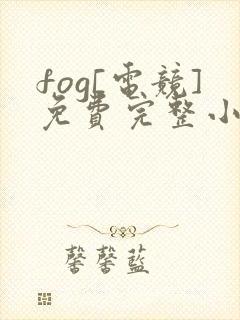 fog[電競]
免費完整小
馨馨藍